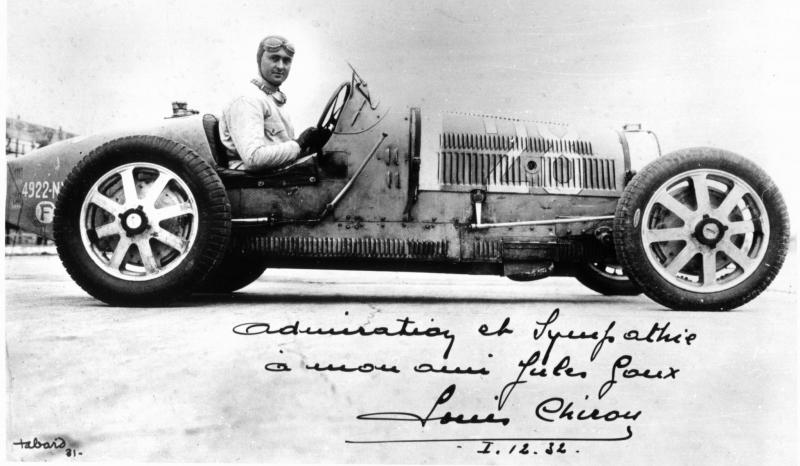 4922-N
F
admiration et Sympathie
à mon ami Jules Goux
Louis Chiron
I.12.32.
tabard
31.